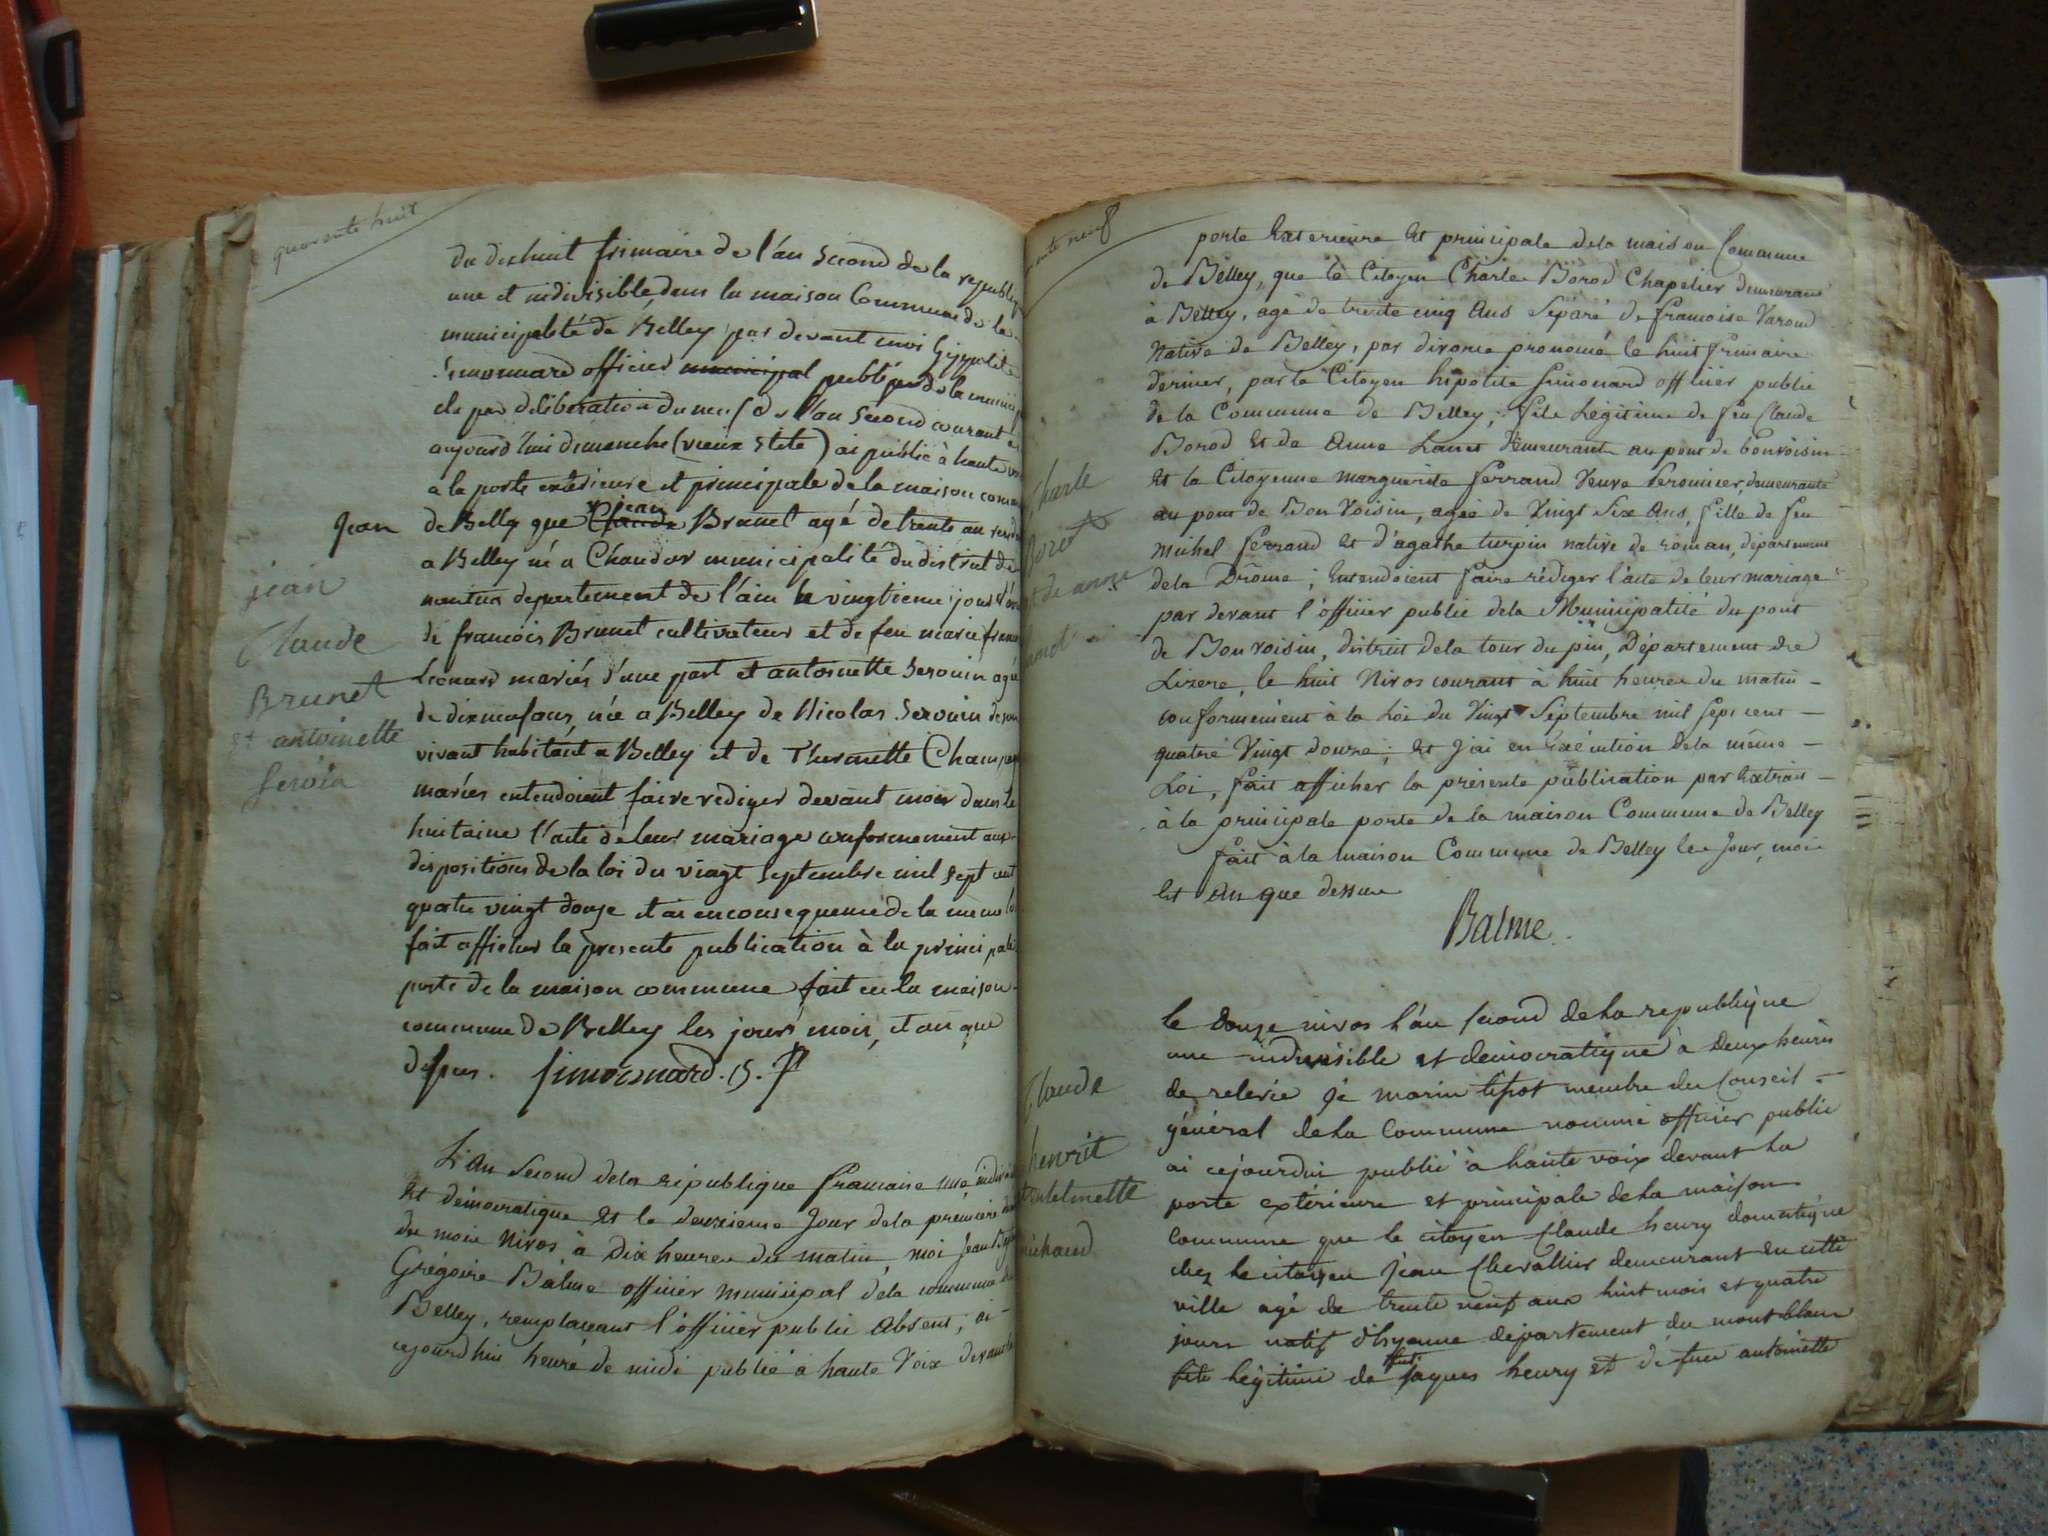 quarente huit
du dixhuit frimaire de l'an second de la republiq
une et indivisible dans la maison Commune de la
municipalité de Belley par devant moi hyppolite
Simonnard officier municipal publi par de la munici
par deliberation du neuf de l'an second courant
aujourd'hui dimanche (vieux stile) ai publié à haute voix
a la porte extérieure et principale de la maison comm
Jean de Belley que Claude jean Brunet agé de trente an
a Belley né a Chandor municipalité du district de
nantua departement de l'ain le vingtieme jour
de francois Brunet cultivateur et de feu marie
Leonard mariés d'une part et antoinette Serovin agée
de dixneuf ans, née a Belley de Nicolas Serovin de son
vivant habitant a Belley et de Thermette Champ
mariés entendoient faire rediger devant moi dans la
huitaine l'acte de leur mariage conformement aux
dispositions de la loi du vingt septembre mil sept cent
quatre vingt douze et ai en consequence de la même loi
fait afficher la presente publication à la principale
porte de la maison commune fait en la maison
commune de Belley les jour, mois, et an que
dessus. Simonnard. o. p
jean
Claude
Brunet
et antoinette
Serovin
L'An Second dela république francaise une indivi
Et démocratique Et le deuxieme Jour dela premiere
du mois Nivos à Dix heures du matin, moi Jean B
Grégoire Balme officier municipal dela commune de
Belley, remplacant l'officier public Absent; ai
cejourdhui heure de midi publié à haute Voix devant la
ente neuf
porte Exterieure Et principale dela maison Commune
de Belley, que le Citoyen Charle Borod Chapelier demeurant
à Belley, agé de trente cinq Ans Séparé de francoise Varoud
Native de Belley, par divorce prononcé le huit frimaire
dernier, par le Citoyen hipolite Simonard officier public
de la Commune de Belley; fils Légitime de feu Claude
Borod Et de Anne Lanet Demeurant au pont de bonvoisin
Et la Citoyenne marguerite ferrand Veuve Peronnier, demeurante
au pont de Bon Voisin, agée de Vingt Six Ans, fille de feu
michel ferrand Et d'agathe turpin native de roman, département
dela Drôme; Entendoient faire rédiger l'acte de leur mariage
par devant l'officier public dela Municipalité du pont
de Bonvoisin, district dela tour du pin, Département de
Lizere, le huit Nivos courant à huit heures du matin
conformement à la Loi du Vingt Septembre mil sept cent
quatre Vingt douze; Et j'ai en Exécution dela même
Loi, fait afficher la présente publication par Extrait
à la principale porte de la maison Commune de Belley
fait à la maison Commune de Belley les Jour, mois
Et An que dessus
Balme
Charle
Borod
le douze nivos l'an second de la republique
une indivisible et democratique à deux heures
de relevée je marin tipot membre du Conseil
général de la Commune nommé officier public
ai cejourdui publié à haute voix devant la
porte extérieure et principale de la maison
commune que le citoyen Claude henry domestique
chez le citoyen jean Chevallier demeurant en cette
ville agé de trente neuf ans huit mois et quatre
jours natif d'hyenne département du montblanc
fils légitime de feu jaques henry et de feue antoinette
Claude
henrit
michaud